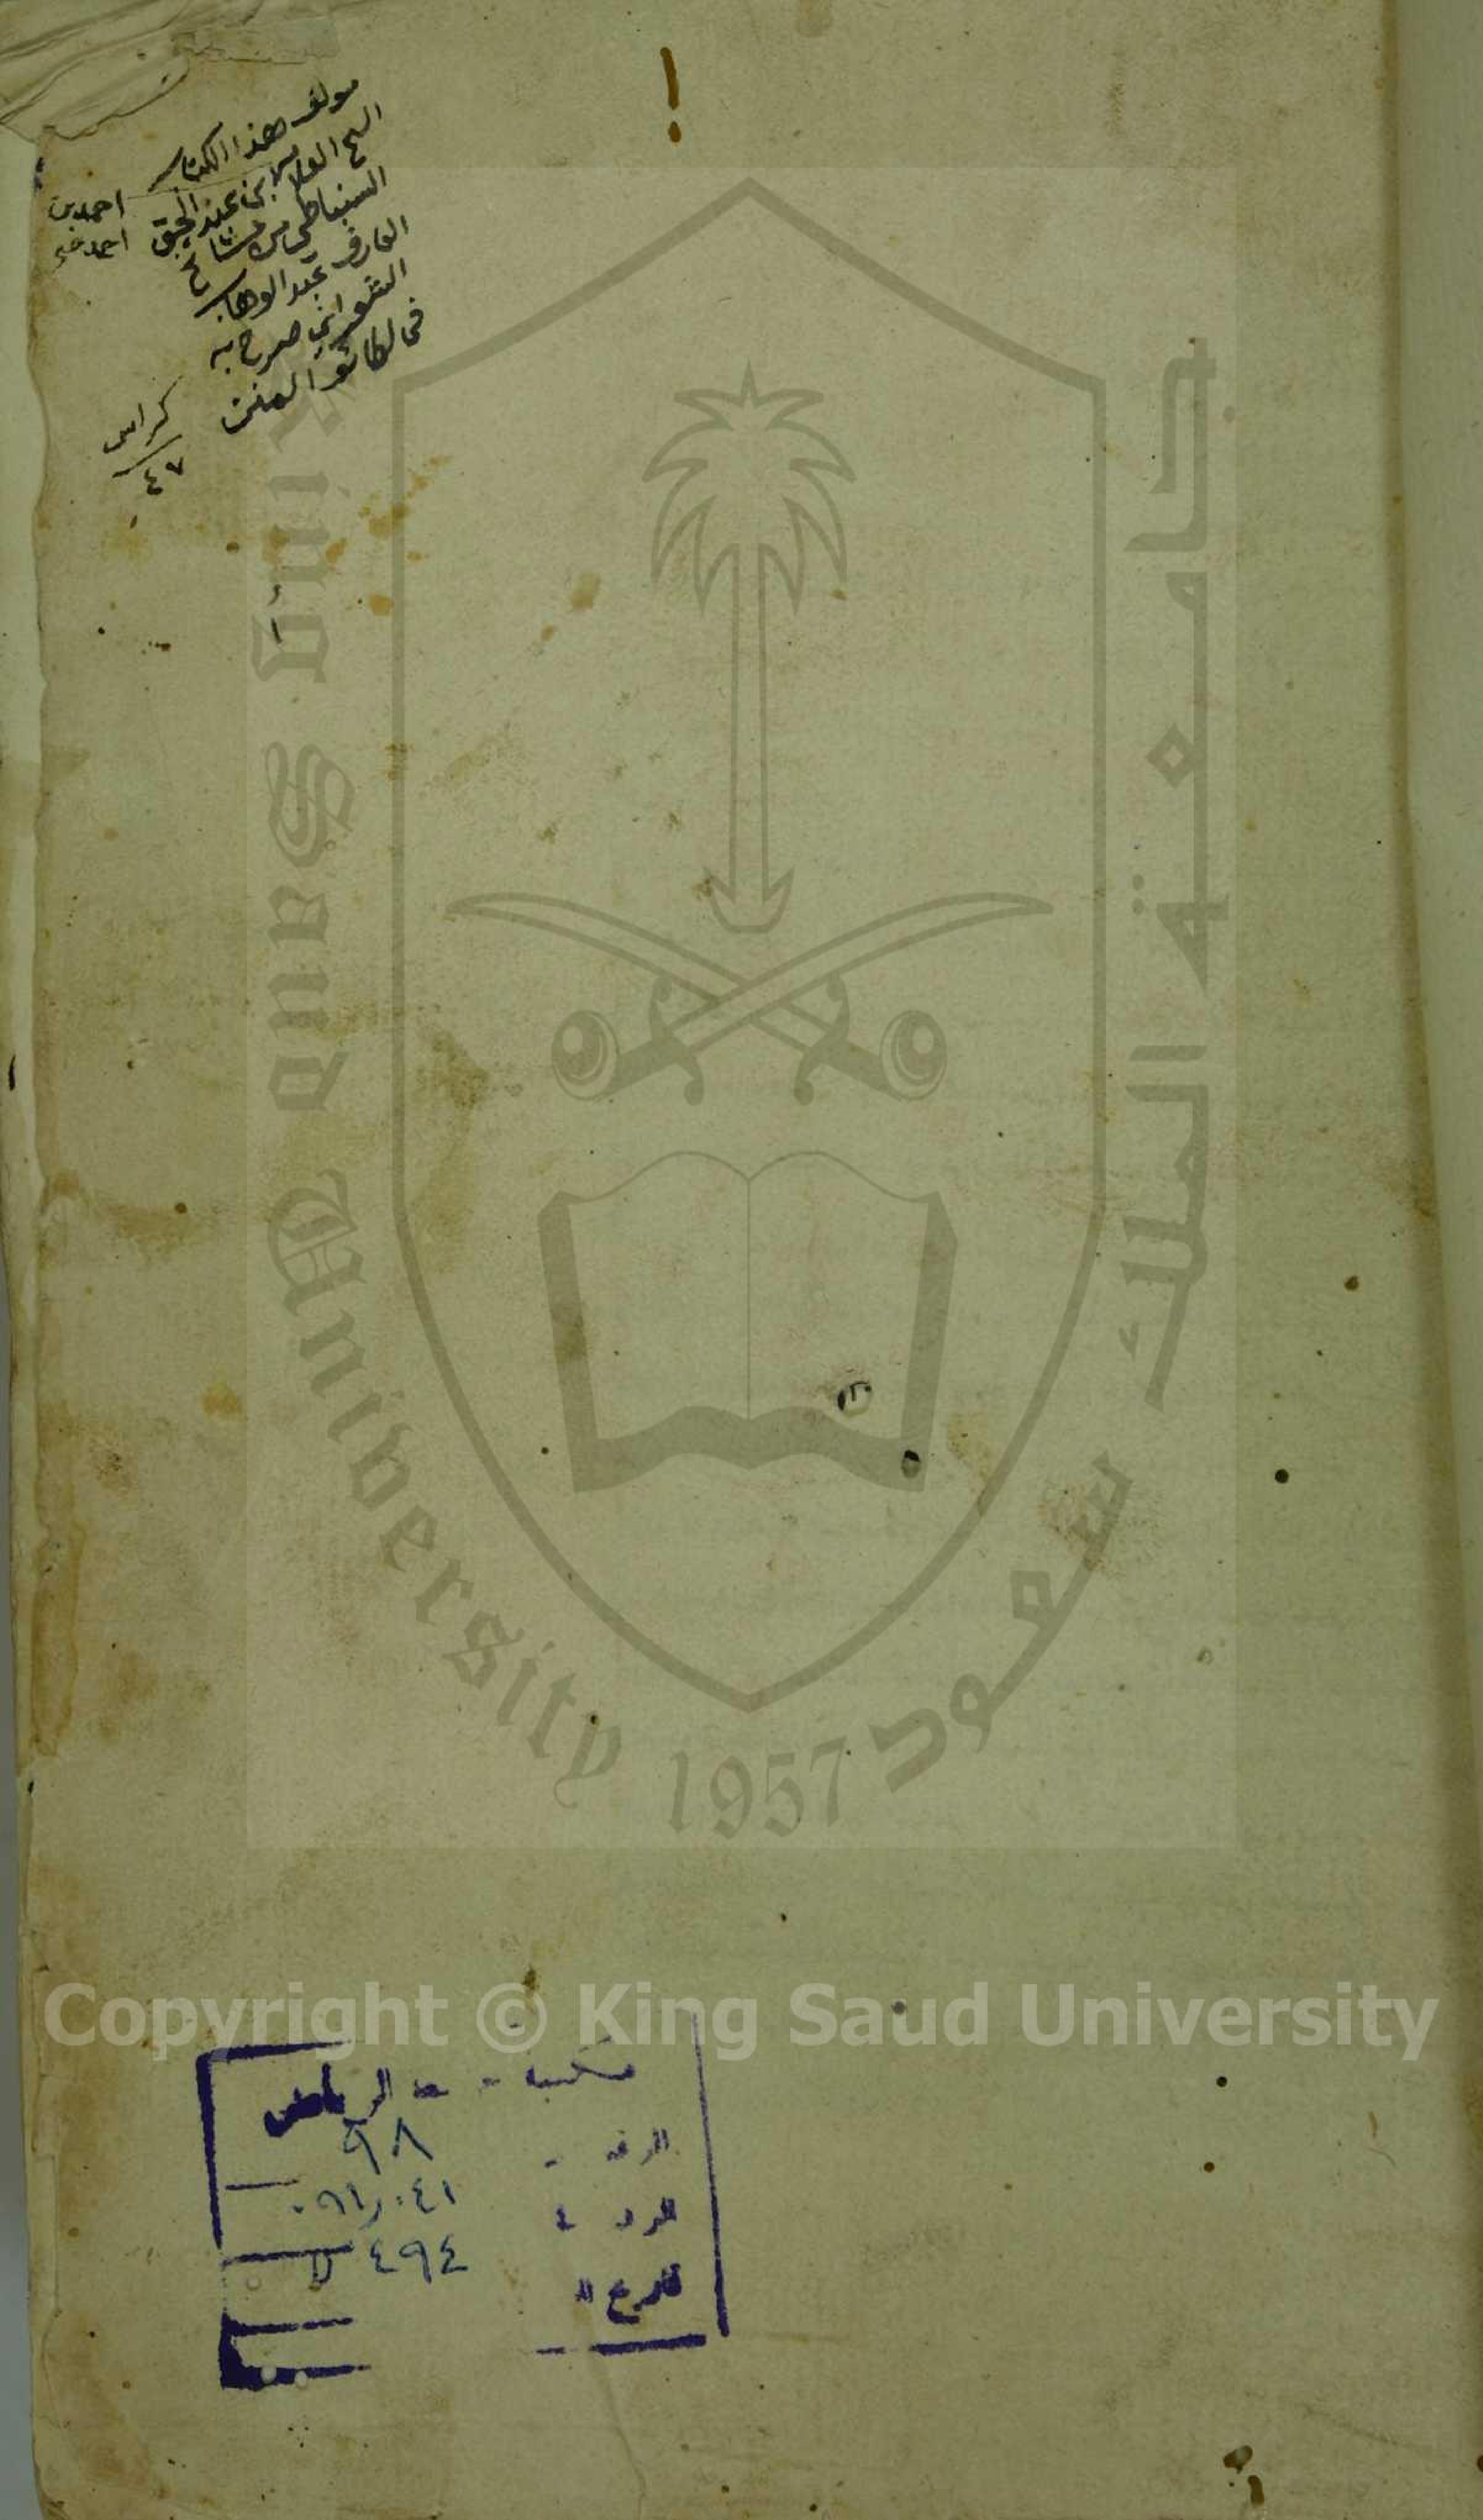 مولف هذا الكتاب
الشيخ العلامة ابن عبد الحق
السنباطي من مشايخ
العارف عبد الوهاب
الشعراني صرح به
في لطائف المنن
احمد بن
احمد
كراس
٤٧
King Saud University
1957
جامعة الملك سعود
Copyright © King Saud University
الرياض
٩٨
٤٩٤